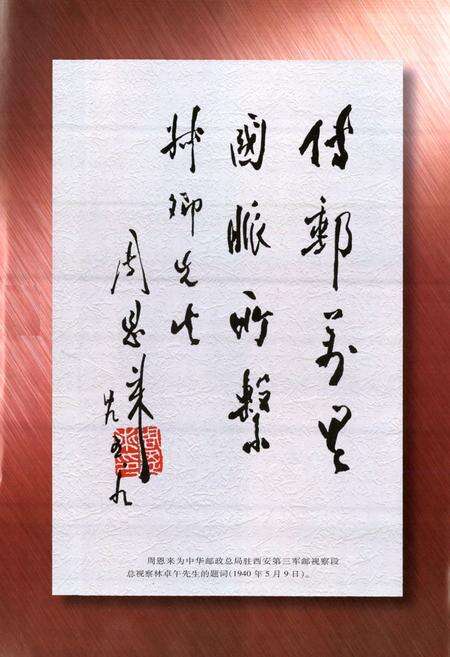 傳郵萬里
國脈所繫
卿先生
周恩来
五 九
周恩来为中华邮政总局驻西安第三军邮视察段
总视察林卓午先生的题词(1940年5月9日)。